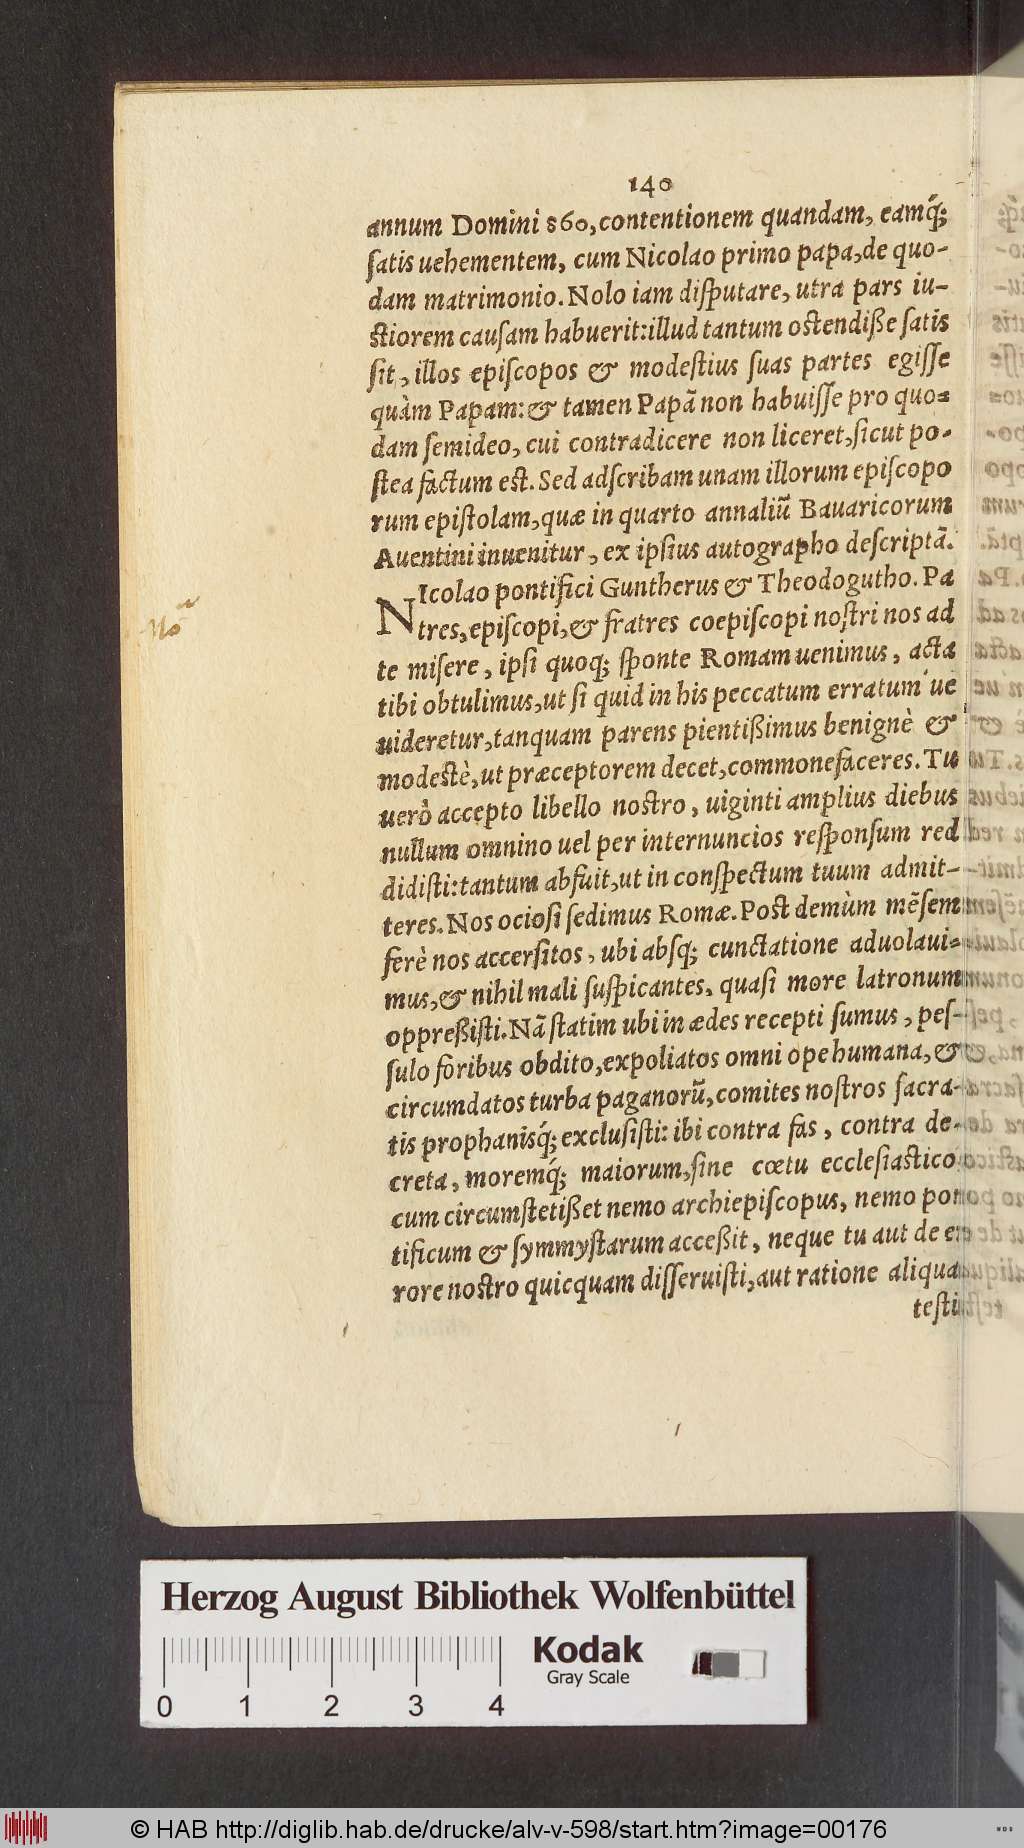 140
annum Domini 860, contentionem quandam, eamq́;
ſatis uehementem, cum Nicolao primo papa, de quo-
dam matrimonio. Nolo iam diſputare, utra pars iu-
ſtiorem cauſam habuerit: illud tantum oſtendiße ſatis
ſit, illos epiſcopos & modeſtius ſuas partes egiſſe
quàm Papam: & tamen Papā non habuiſſe pro quo-
dam ſemideo, cui contradicere non liceret, ſicut po-
ſtea factum eſt. Sed adſcribam unam illorum epiſcopo
rum epiſtolam, quæ in quarto annaliū Bauaricorum
Auentini inuenitur, ex ipſius autographo deſcriptā.
NIcolao pontifici Guntherus & Theodogutho. Pa
tres, epiſcopi, & fratres coepiſcopi noſtri nos ad
te miſere, ipſi quoq; ſponte Romam uenimus, acta
tibi obtulimus, ut ſi quid in his peccatum erratum ue
uideretur, tanquam parens pientißimus benignè &
modeſtè, ut præceptorem decet, commonefaceres. Tu
uerò accepto libello noſtro, uiginti amplius diebus
nullum omnino uel per internuncios reſponſum red
didiſti: tantum abfuit, ut in conſpectum tuum admit-
teres. Nos ocioſi ſedimus Romæ. Poſt demùm mēſem
ferè nos accerſitos, ubi abſq; cunctatione aduolaui-
mus, & nihil mali ſuſpicantes, quaſi more latronum
oppreßiſti. Nā ſtatim ubi in ædes recepti ſumus, peſ-
ſulo foribus obdito, expoliatos omni ope humana, &
circumdatos turba paganorū, comites noſtros ſacra-
tis prophanisq́; excluſiſti: ibi contra fas, contra de-
creta, moremq́; maiorum, ſine cœtu eccleſiaſtico
cum circumſtetißet nemo archiepiſcopus, nemo pon
tificum & ſymmyſtarum acceßit, neque tu aut de er
rore noſtro quicquam diſſeruiſti, aut ratione aliqua
teſti
Herzog August Bibliothek Wolfenbüttel
Kodak
Gray Scale
0 1 2 3 4
© HAB http://diglib.hab.de/drucke/alv-v-598/start.htm?image=00176